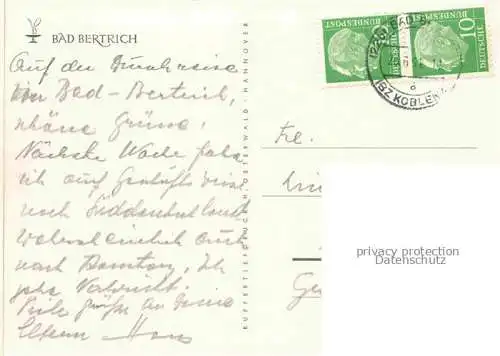 BAD BERTRICH
Auf der Durchreise
von Bad-Bertrich,
schöne Grüsse!
Nächste Woche fahre
ich auf Geschäftsreise
nach Süddeutschland
wahrscheinlich auch
nach
Ich
gebe Nachricht.
Viele Grüße an Deine
Eltern Hans
KUPFERTIEFDRUCK H. OSTERWALD · HANNOVER
DEUTSCHE BUNDESPOST
DEUTSCHE BUNDESPOST
10
KOBLENZ
Frl.
privacy protection
Datenschutz